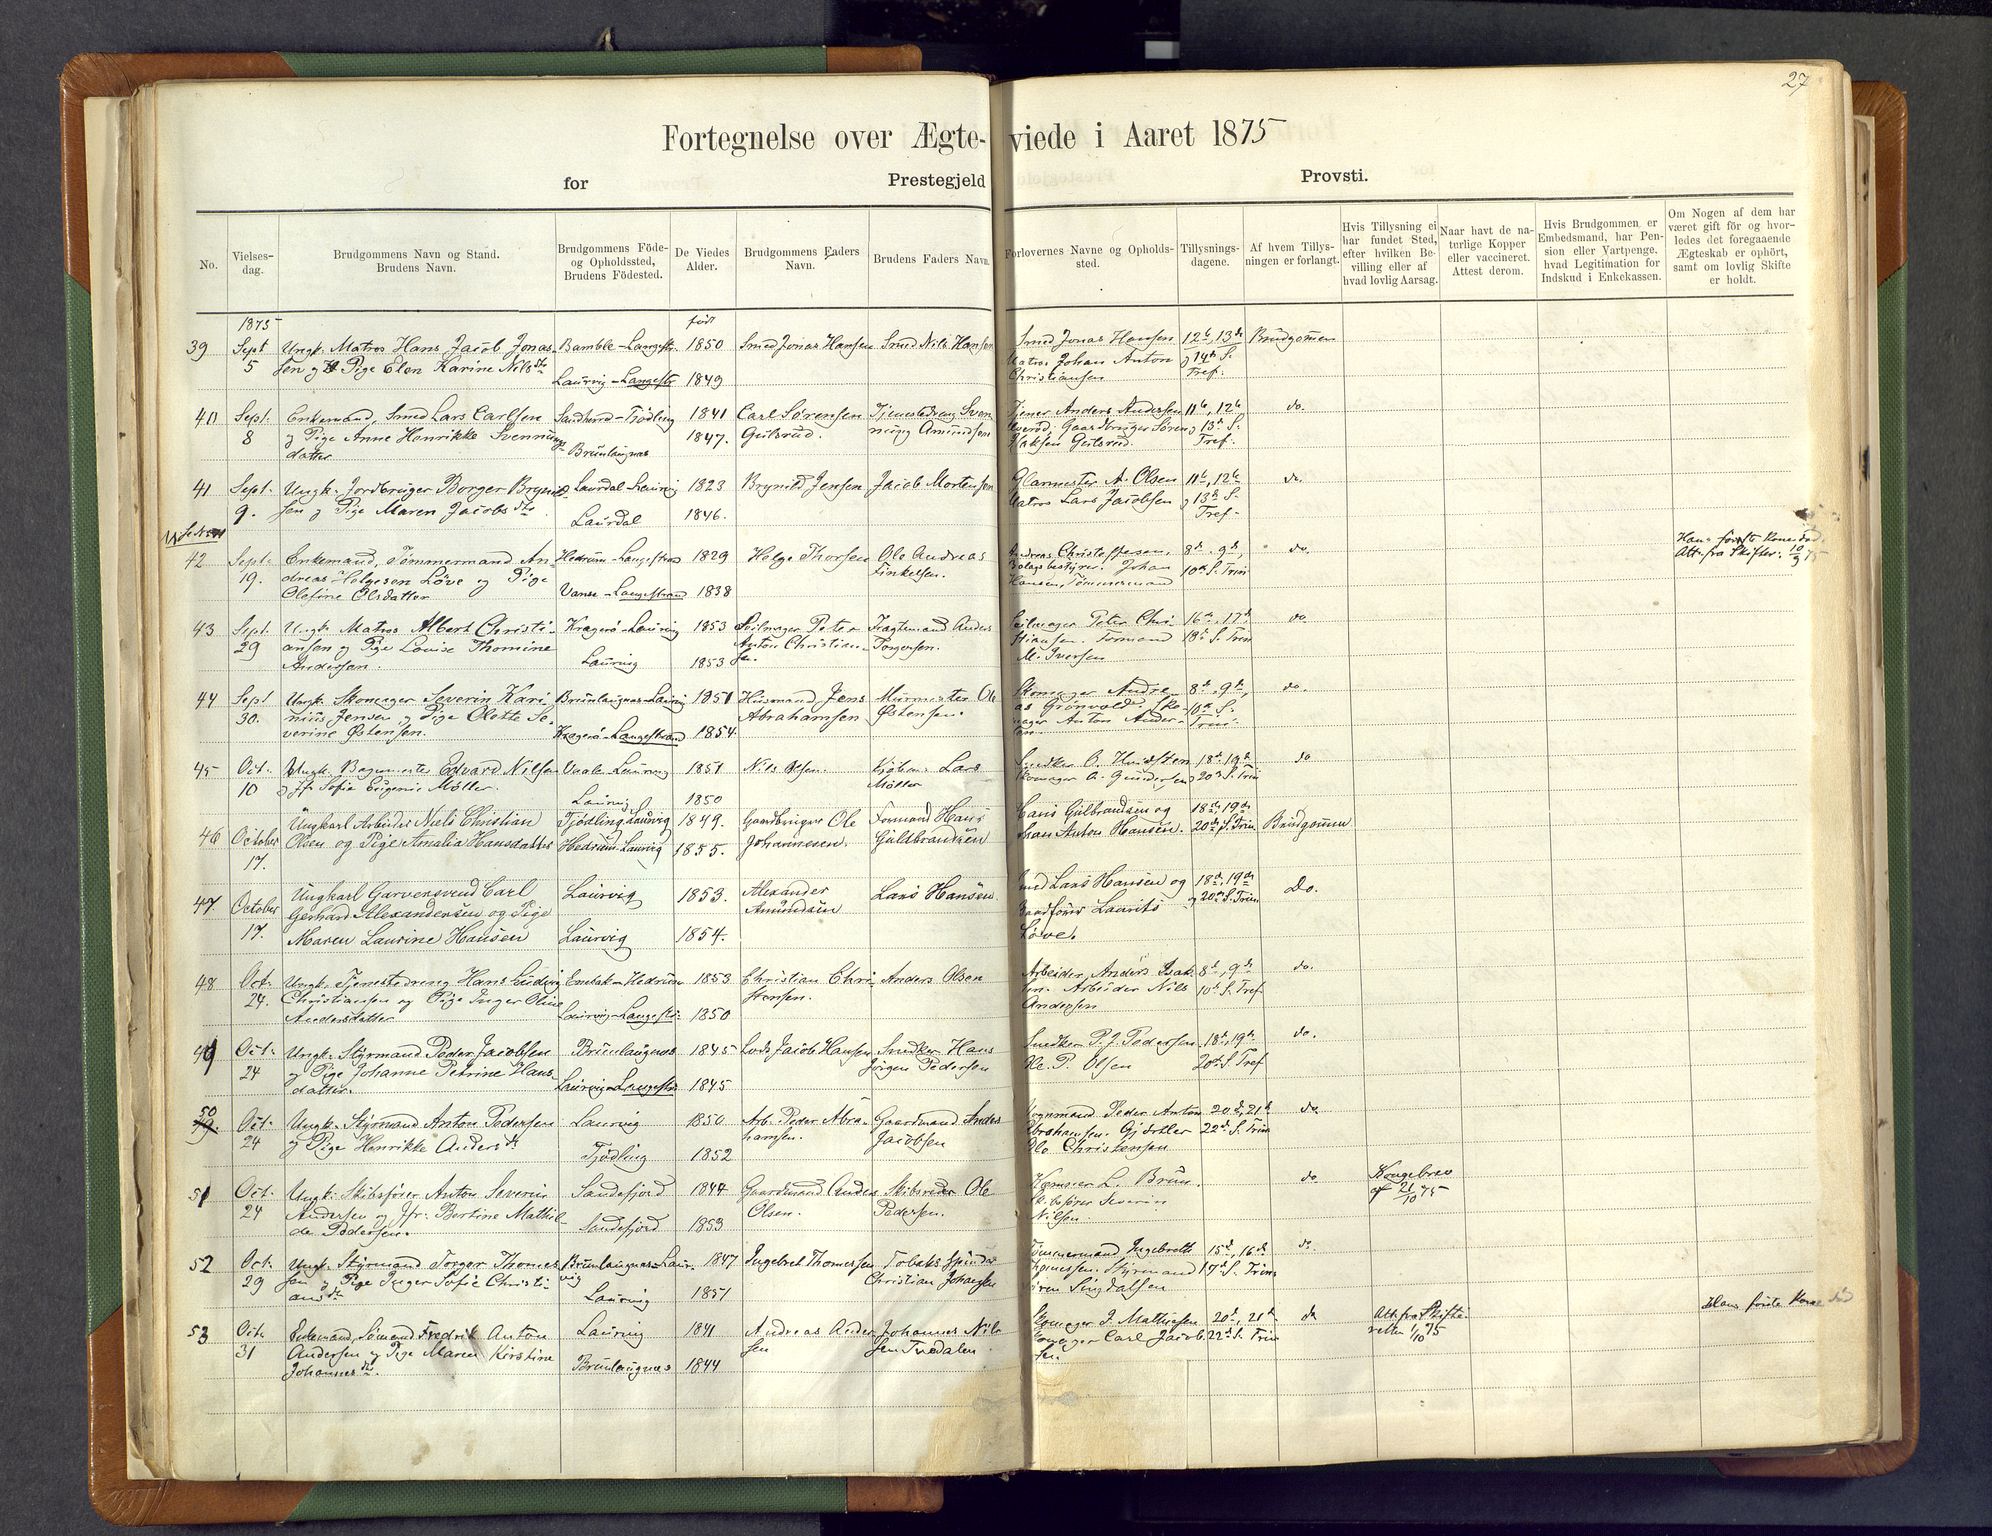 27
Fortegnelse over Ægte- viede i Aaret 1875
for Prestegjeld Provsti.
No. Vielses-dag. Brudgommens Navn og Stand. Brudens Navn. Brudgommens Føde- og Opholdssted, Brudens Fødested. De Viedes Alder. Brudgommens Faders Navn. Brudens Faders Navn. Forlovernes Navne og Opholdssted. Tillysningsdagene. Af hvem Tillysningen er forlangt. Hvis Tillysning ei har fundet Sted, efter hvilken Bevilling eller af hvad lovlig Aarsag. Naar havt de naturlige Kopper eller vaccineret. Attest derom. Hvis Brudgommen er Embedsmand, har Pension eller Vartpenge. hvad Legitimation for Indskud i Enkekassen. Om Nogen af dem har været gift før og hvorledes det foregaaende Ægteskab er ophørt, samt om lovlig Skifte er holdt.
1875 født
39 Sept Ungk. Matros Hans Jacob Jonas- Bamble-Langestr. 1850 Smed Jonas Hansen Smed Nils Hansen Smed Jonas Hansen 12te, 13de Brudgommen
5 sen og Pige Elen Karine Nilsdtr Matros Johan Anton og 14de S.
Laurvig-Langestr 1849 Christiansen Tref.
40 Sept. Enkemand, Smed Lars Carlsen Sandherred-Tjødling 1841 Carl Sørensen Tjenestedreng Sven Tjener Anders Andersen 11te, 12te do.
8 og Pige Anne Henrikke Svennings- 1847. Gulsrud. ning Amundsen Gaardbruger Søren og 13de S.
datter Brunlaugnæs Isaksen Gulsrud. Tref.
41 Sept. Ungk. Jordbruger Borger Bryni- Laurdal-Laurvig 1823 Brynild Jensen Jacob Mortensen Glarmester A. Olsen 11te, 12te do.
9. sen og Pige Maren Jacobsdtr. Matros Lars Jacobsen og 13de S.
Laurdal 1846. Tref.
42 Sept. Enkemand, Tømmermand An- Hedrum-Langestrand 1829 Helge Thorsen Ole Andreas Andreas Christoffersen, 8de, 9de, do. Hans første Kone død.
19. dreas Helgesen Løve og Pige Finkelsen. Bolagsbestyrer. Johan 10de S. Trin Att. fra Skifter. 10/9 75
Olefine Olsdatter Vanse-Langestrand 1838 Hansen, Tømmermand
43 Sept. Ungk. Matros Albert Christi- Kragerø-Laurvig 1853 Seilmager Peter Fragtemand Anders Seilmager Peter Chri- 16de, 17de do.
29 ansen og Pige Lovise Thomine Anton Christian- Torgersen. stiansen. Formand 18de S. Trin
Andersen. Laurvig 1853 sen. M. Iversen
44 Sept Ungk. Skomager Severin Kari- Brunlaugnæs-Laurvig 1851 Husmand Jens Murmester Ole Skomager Andre- 8de, 9de, do.
30. nius Jensen og Pige Olette Se- Abrahamsen Østensen. as Grønvold, Sko- 10de S.
verine Østensen. Kragerø-Langestrand 1854. mager Anton Ander- Trin.
sen.
45 Oct. Ungk. Bagermester Edvard Nilsen Laurvig 1851 Nils Olsen. Kjøbm. Lars Snedker O. 18de, 19de do
10 og Jfr Sofie Eugenie Møller. Møller Skomager A. Gundersen 20de S. Trin
Laurvig 1850
46 October Ungkarl Arbeider Niels Christian Tjødling, Laurvig 1849. Gaardbruger Ole Formand Hans Hans Gulbrandsen og 18de, 19de Brudgommen
17. Olsen og Pige Amalia Hansdatter Hedrum-Laurvig 1855. Johannesen. Guldbrandsen Anton Hansen. 20de S. Trin
47. October Ungkarl Garversvend Carl Laurvig 1853. Alexander Lars Hansen. Smed Lars Hansen og 18de, 19de Do.
17. Gerhard Alexandersen og Pige Amundsen Laurits og 20de S. Trin
Maren Laurine Hansen Laurvig 1854. Løve.
48 Oct. Ungk. Tjenestedreng Hans Ludvig Hedrum 1853 Christian Chri- Anders Olsen Arbeider Anders Isak- 8de, 9de do.
24. Christiansen og Pige Inger Oline stensen. sen. Arbeider Nils 10de S. Tref
Andersdatter Laurvig-Langestr. 1850 Andersen
49 Oct. Ungk. Styrmand Peder Jacobsen Brunlaugnæs 1845 Lods Jacob Hansen Snedker Hans Snedker P. J. Pedersen. 18de, 19de do.
24 og Pige Johanne Petrine Hans- Jørgen Pedersen Ole P. Olsen 20de S. Tref
datter. Laurvig-Langestr 1845
50 Oct. Ungk. Styrmand Anton Pedersen Laurvig 1850 Arb. Peder Abra- Gaardmand Anders Vognmand Peder Anton 20de, 21de do.
24 og Pige Henrikke Andersdtr hamsen. Jacobsen Abrahamsen. Gjørtler 22de S. Trin
Tjødling 1852 Ole Christensen
51 Oct. Ungk. Skibsfører Anton Severin Sandefjord 1844 Gaardmand Anders Skibsreder Ole Kæmner L. Bruun. do Kongebrev
24 Andersen og Jfr. Bertine Mathil- Olsen. Pedersen. Skibsfører Severin af 21/10 75
de Pedersen. Sandefjord 1853 Nilsen
52 Oct. Ungk. Styrmand Torger Thomes- Brunlaugnæs-Laur- 1847 Ingebret Thomesen Tobaksspinder Tømmermand Ingebreth 15de, 16de do.
29 sen og Pige Inger Sofie Christi- vig Christian Johansen Thomessen. Styrmand 17de S. Trin.
ansdtr Laurvig 1851 Søren Singdalsen
53 Oct. Enkemand, Sømand Fredrik Anton Laurvig 1841 Andreas Ander- Johannes Nil- Skomager J. Mathiesen 20de, 21de do Att. fra Skifte- Hans første Kone død
31 Andersen og Pige Maren Kirstine sen sen Tvedalen Skomager Carl Jacob- 22de S. Trin retten 1/10 75
Johannesdtr. Brunlaugnæs 1844 sen.